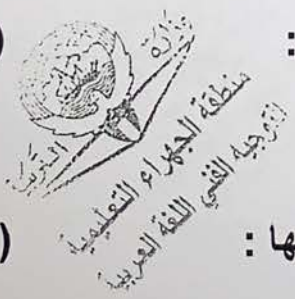 وزارة
التربية
منطقة الجهراء التعليمية
التوجيه الفني اللغة العربية
:
(
ها :
(